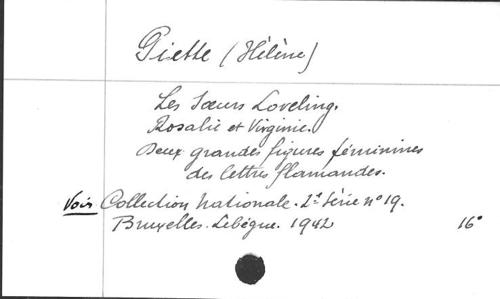 Piette (Hélène)
Les Sœurs Loveling.
Rosalie et Virginie.
Deux grandes figures féminines
des lettres flamandes.
Voir Collection Nationale. 2e Série n° 19.
Bruxelles. Lebègue. 1942 16°